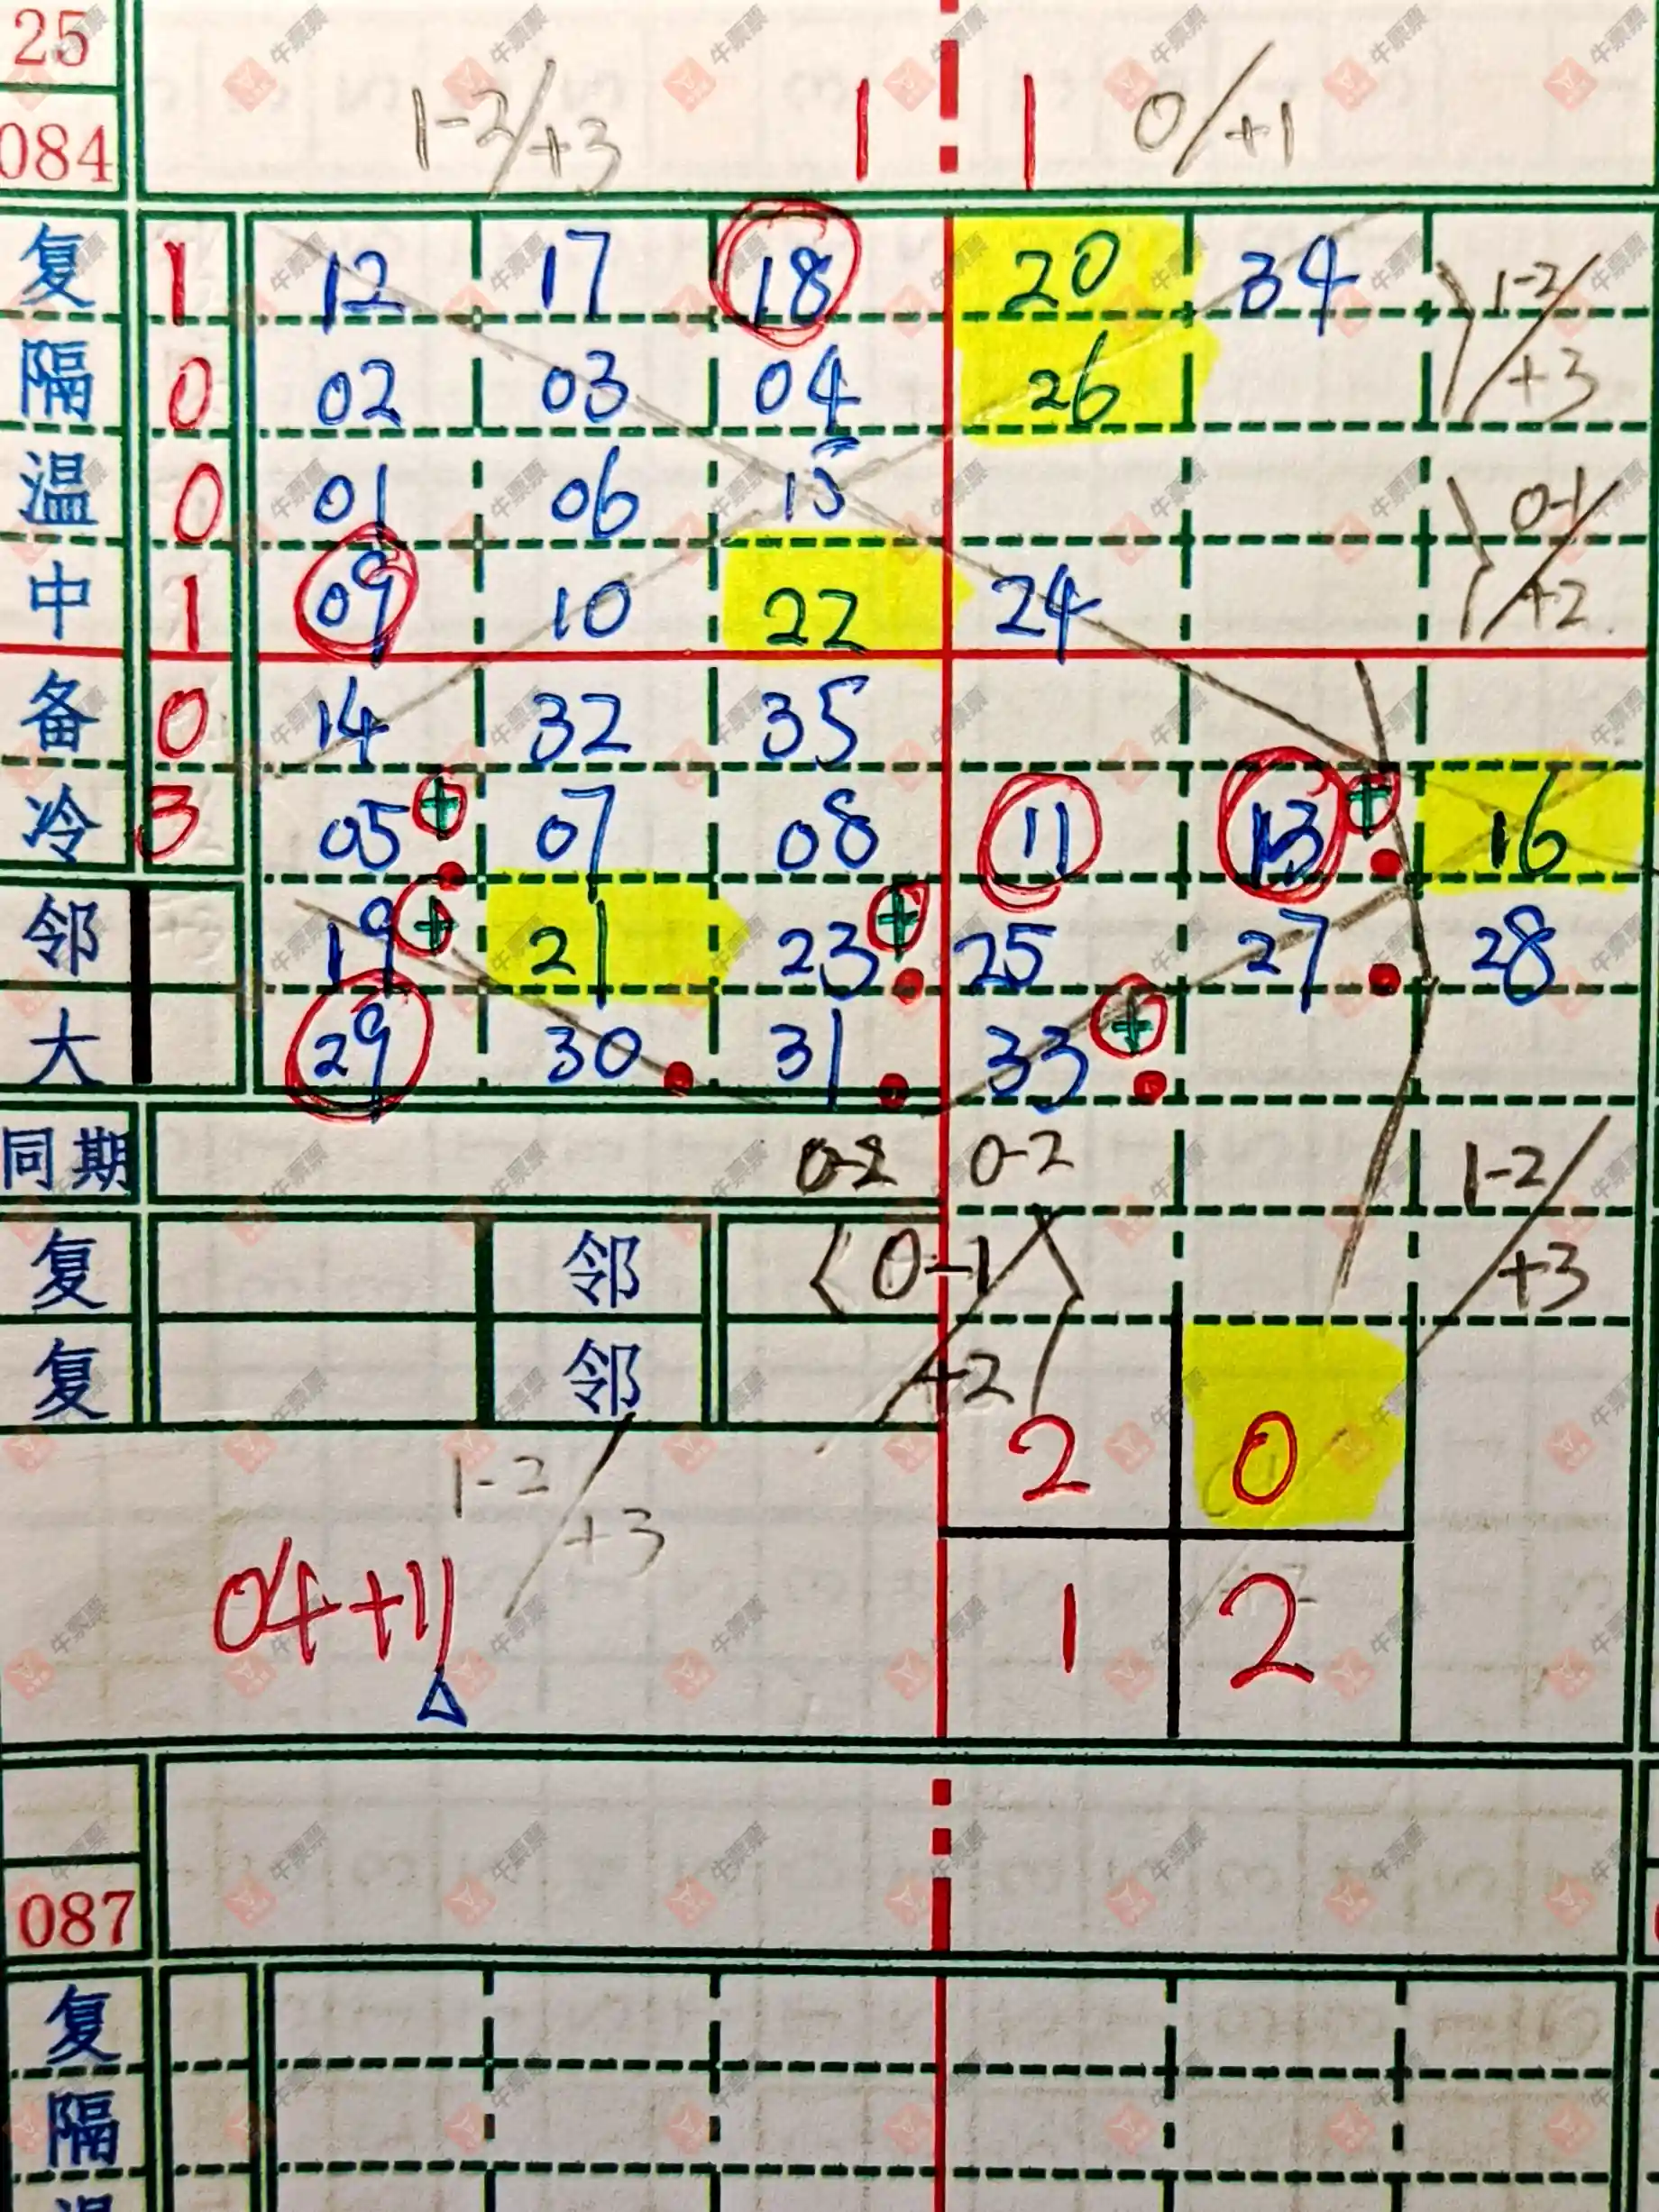 25
084 1-2/+3 1 1 0/+1
复 1 12 17 18 20 34 1-2/+3
隔 0 02 03 04 26
温 0 01 06 15 0-1/+2
中 1 09 10 22 24
备 0 14 32 35
冷 3 05+ 07 08 11 13+ 16
邻 19+ 21 23+ 25 27 28
大 29 30 31 33+
同期 0-2 0-2 1-2/+3
复 邻 0-1/+2
复 邻
1-2/+3 2 0
04+11 1 2
087
复
隔
温
牛票票